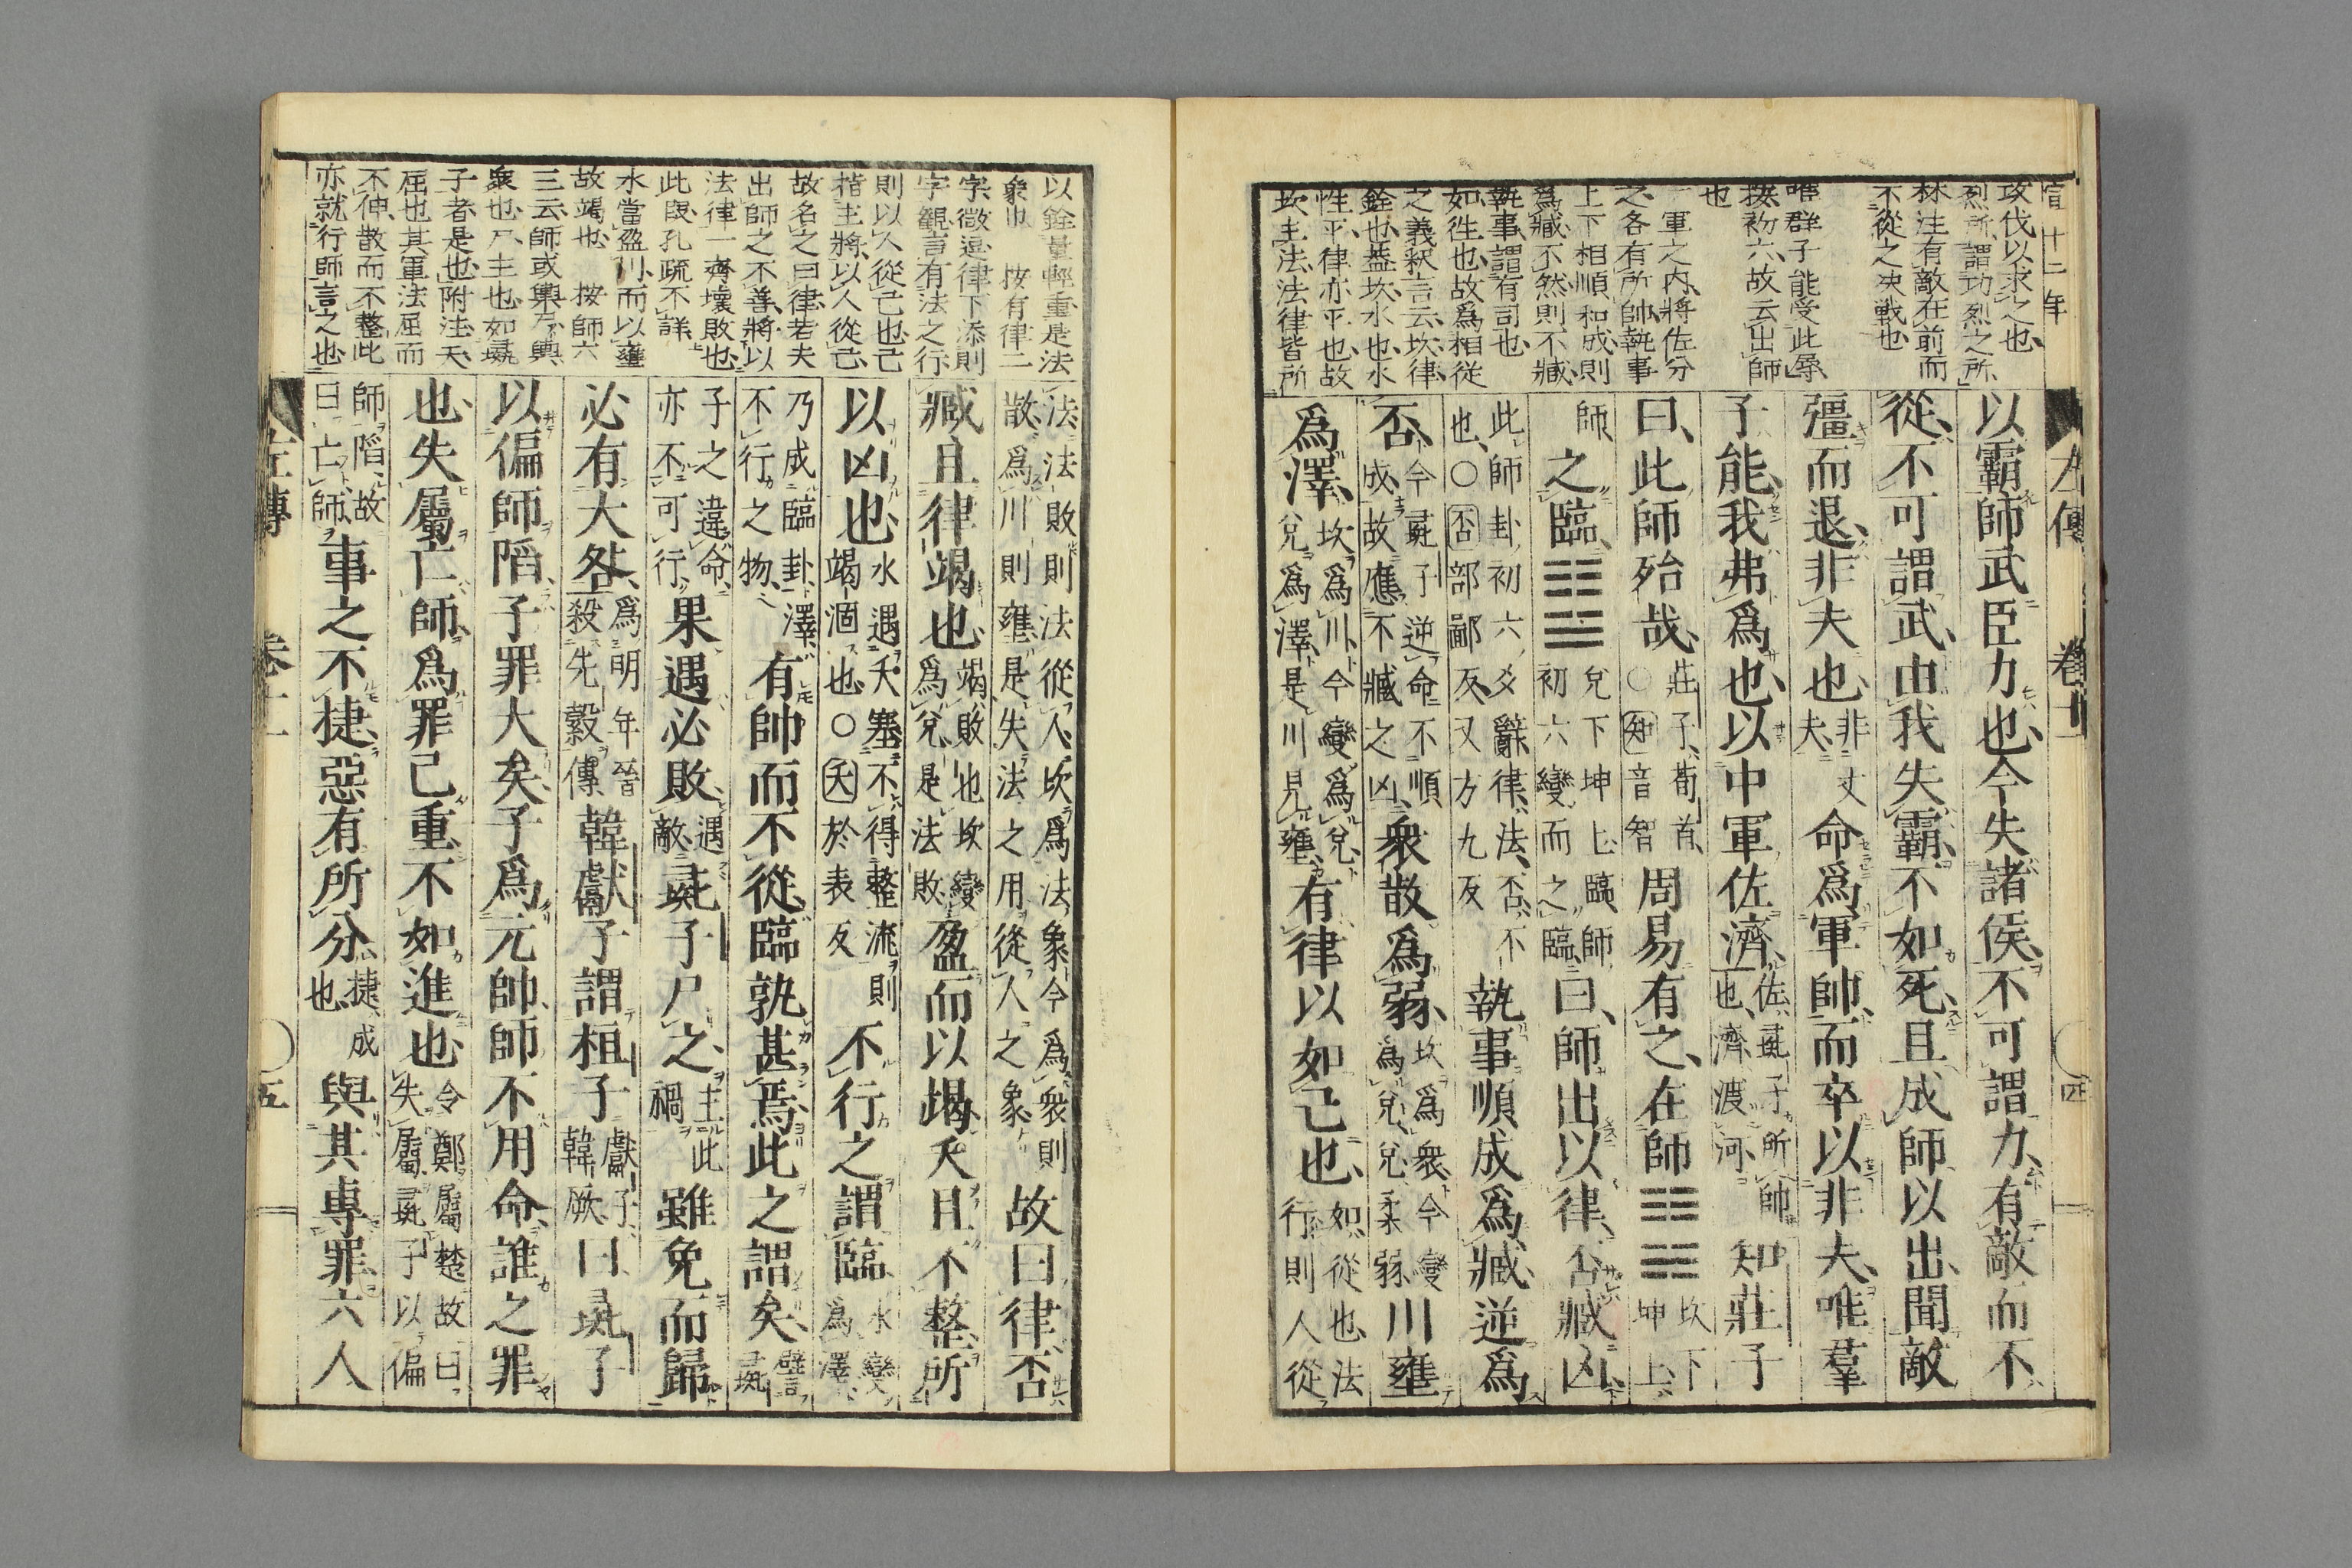 宣十二年
攻伐以求之也
烈所謂功烈之所
林注有敵在前而
不從之决戰也
唯群子能受此辱
按初六故云出師
也
一軍之内將佐分
之各有所帥執事
上下相順和成則
爲臧不然則不臧
執事謂有司也
如徃也故爲相從
之義釈言云坎律
銓也葢坎水也水
性平律亦平也故
坎主法法律皆所
左傳 卷十一 四
以霸師武臣力也今失諸侯不可謂力有敵而不
從不可謂武由我失霸不如死且成師以出聞敵
彊而退非夫也非丈夫命爲軍帥而卒以非夫唯羣
子能我弗爲也以中軍佐濟佐彘子所帥也濟渡河知莊子
曰此師殆哉莊子荀首○知音智周易有之在師䷆坎下坤上
師之臨䷒兌下坤上臨師初六變而之臨曰師出以律否臧凶
此師卦初六爻辭律法否不也○否部鄙反又方九反執事順成爲臧逆爲
否今彘子逆命不順成故應不臧之凶衆散爲弱坎爲衆今變爲兌兌柔弱川壅
爲澤坎爲川今變爲兌兌爲澤是川見壅有律以如己也如從也法行則人從
以銓量輕重是法
象也 按有律二
字徴逗律下添則
字觀言有法之行
則以人從己也己
指主將以人從己
故名之曰律若夫
出師之不善將以
法律一齊壞敗也
此段孔疏不詳
水當盈川而以壅
故竭也 按師六
三云師或輿尸輿
衆也尸主也如彘
子者是也附注夭
屈也其軍法屈而
不伸散而不整此
亦就行師言之也
法法敗則法從人坎爲法象今爲衆則散爲川則壅是失法之用從人之象故曰律否
臧且律竭也竭敗也坎變爲兌是法敗盈而以竭夭且不整所
以凶也水遇夭塞不得整流則竭涸也○夭於表反不行之謂臨水變爲澤
乃成臨卦澤不行之物有帥而不從臨孰甚焉此之謂矣譬彘
子之違命亦不可行果遇必敗遇敵彘子尸之主此禍雖免而歸
必有大咎爲明年晉殺先縠傳韓獻子謂桓子獻子韓厥曰彘子
以偏師陷子罪大矣子爲元帥師不用命誰之罪
也失屬亡師爲罪已重不如進也令鄭屬楚故曰失屬彘子以偏
師陷故曰亡師事之不捷惡有所分捷成也與其專罪六人
左傳 卷十一 五